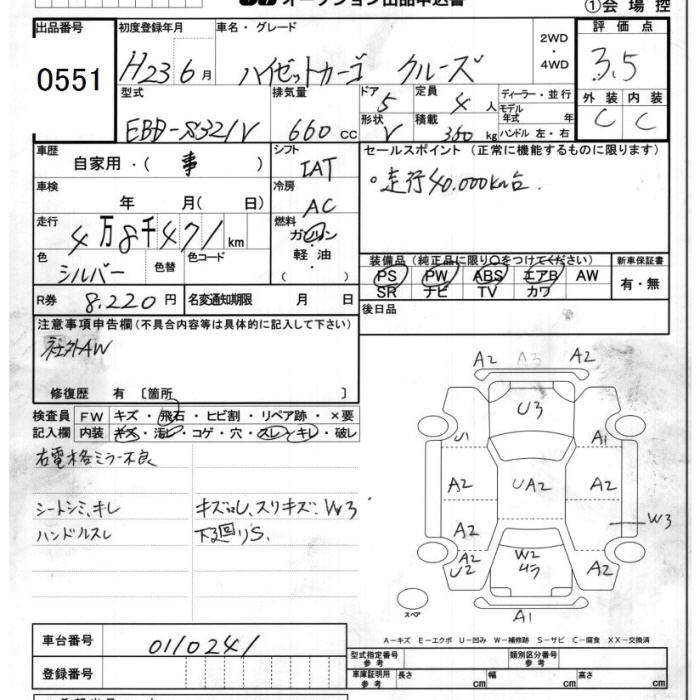 オークション出品申込書
①会場控
出品番号
0551
初度登録年月
H23 6月
車名・グレード
ハイゼットカーゴ クルーズ
2WD
・
4WD
評価点
3.5
型式
EBD-S321V
排気量
660 cc
ドア
5
定員
4 人
ディーラー・並行
モデル
年式 年
形状
V
積載
350 kg
ハンドル 左・右
外装
C
内装
C
車歴
自家用・(事)
シフト
IAT
セールスポイント (正常に機能するものに限ります)
○走行40.000km台.
車検
年 月(日)
冷房
AC
走行
4万8千471 km
燃料
ガソリン
・
軽油
( )
色
シルバー
色替
色コード
装備品(純正品に限り○をつけてください)
PS PW ABS エアB AW
SR ナビ TV カワ
新車保証書
有・無
R券 8.220円
名変通知期限 月 日
後日品
注意事項申告欄(不具合内容等は具体的に記入して下さい)
社外AW
修復歴 有〔箇所 〕
検査員
記入欄
FW キズ・飛石・ヒビ割・リペア跡・×要
内装 キズ・汚レ・コゲ・穴・スレ・キレ・破レ
右電格ミラー不良
シートシミ、キレ
ハンドルスレ
スリキズ. W3
下廻りS.
A2 A3 A2
U3
U1 A1
A2 UA2 A2
A2 W3
A2
U2
W2
A2
スペア
A1
A-キズ E-エクボ U-凹み W-補修跡 S-サビ C-腐食 XX-交換済
車台番号
0110241
登録番号
型式指定番号
参考
類別区分番号
参考
車庫証明用
参考
長さ cm
幅 cm
高さ cm